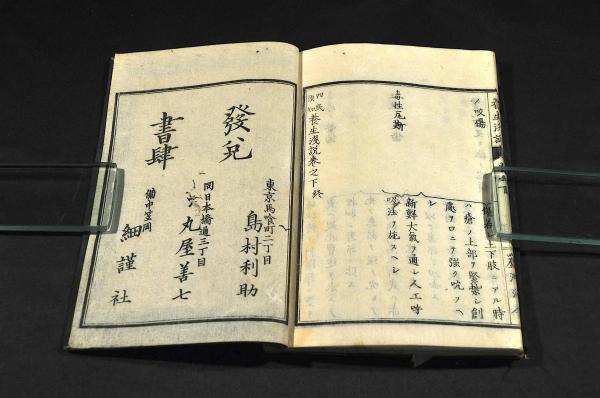 養生淺説
ノ咬傷
上下肢ニアル時
ハ瘡ノ上部ヲ緊紮シ創
處ヲロニテ強ク吮フヘ
シ
毒性瓦斯
新鮮大氣ヲ通シ人工呼
吸法ヲ施スヘシ
四民須知
養生淺説巻之下終
發兌
書肆
東京馬喰町二丁目
島村利助
同日本橋通三丁目
丸屋善七
備中笠岡
細謹社